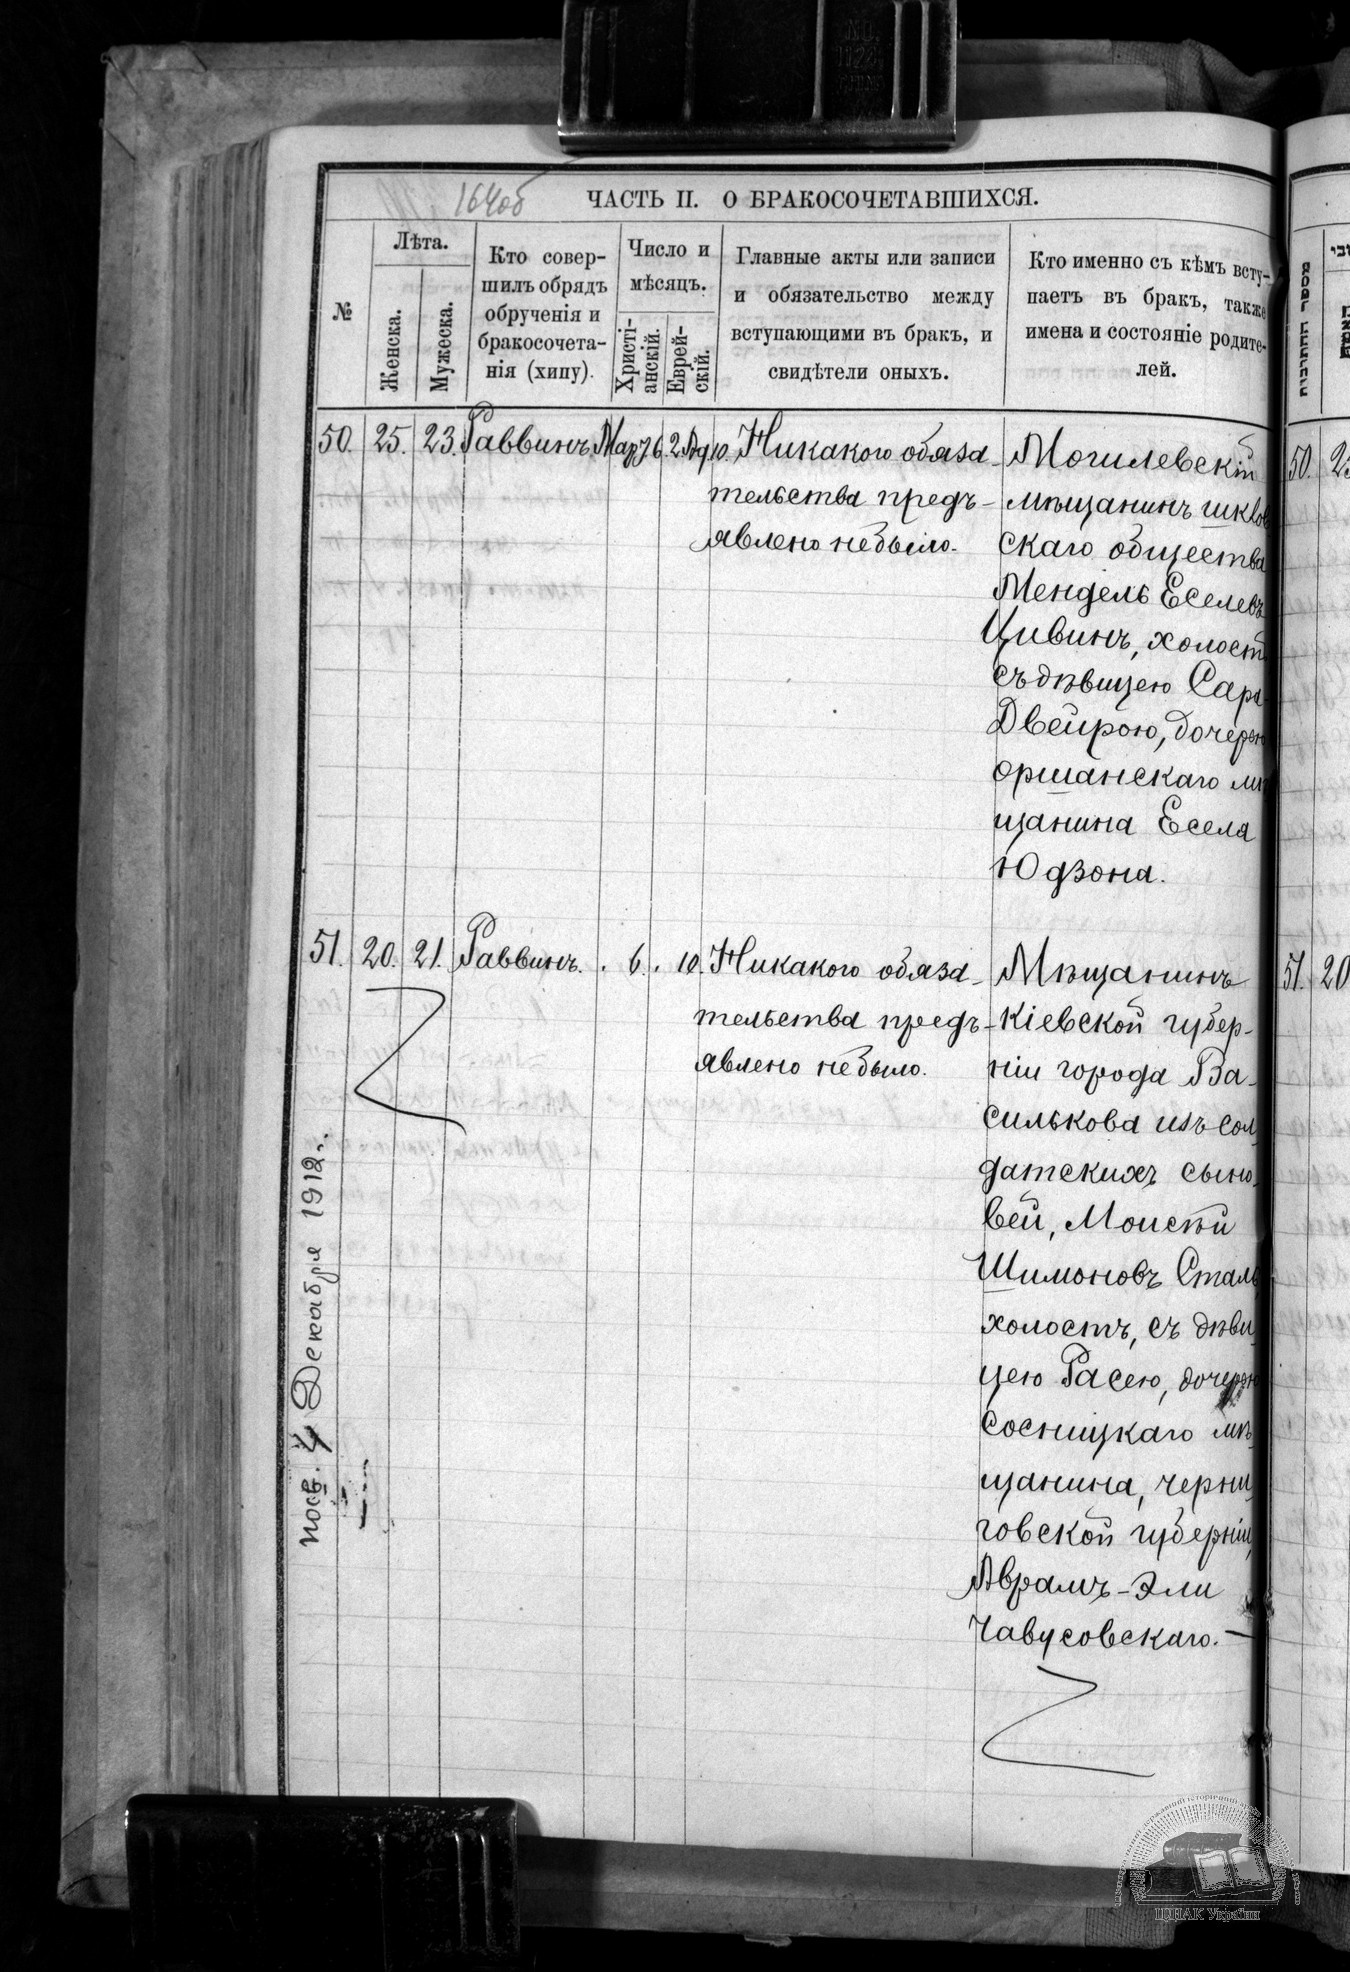 164об
ЧАСТЬ II. О БРАКОСОЧЕТАВШИХСЯ.
№
Лѣта.
Женска.
Мужеска.
Кто совер-
шилъ обрядъ
обрученія и
бракосочета-
нія (хипу).
Число и
мѣсяцъ.
Христі-
анскій.
Еврей-
скій.
Главные акты или записи
и обязательство между
вступающими въ бракъ, и
свидѣтели оныхъ.
Кто именно съ кѣмъ всту-
паетъ въ бракъ, также
имена и состояніе родите-
лей.
50. 25. 23. Раввинъ. 6 10. Никакого обяза-
тельства предъ-
явлено не было.
Могилевскій
мѣщанинъ шклов
скаго общества
Мендель Еселевъ
Цивинъ, холостъ
съ дѣвицею Сара-
Двейрою, дочерею
оршанскаго мѣ
щанина Еселя
Юдзона.
51. 20. 21. Раввинъ. 6. 10. Никакого обяза-
тельства предъ-
явлено не было.
Мѣщанинъ
Кіевской губер-
ніи города Ва-
силькова изъ сол
датскихъ сыно-
вей, Моисѣй
Шимоновъ Сталь
холостъ, съ дѣви
цею Расею, дочерею
сосницкаго мѣ-
щанина, черни
говской губерніи,
Аврамъ-Эли
Чавусовскаго.
4 Декабря 1912
50. 2
51. 20
ЦДІАК України